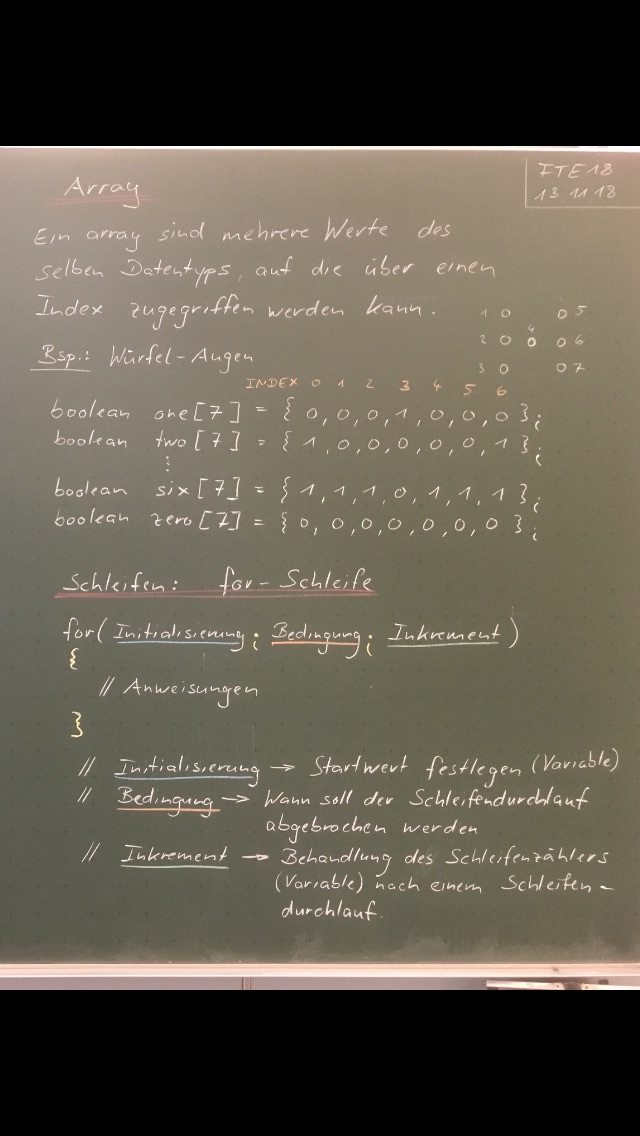 FTE18
13 11 18
Array
Ein array sind mehrere Werte des
selben Datentyps, auf die über einen
Index zugegriffen werden kann.
1 0 0 5
4
2 0 0 0 6
3 0 0 7
Bsp.: Würfel-Augen
INDEX 0 1 2 3 4 5 6
boolean one[7] = { 0, 0, 0, 1, 0, 0, 0 };
boolean two[7] = { 1, 0, 0, 0, 0, 0, 1 };
⋮
boolean six[7] = { 1, 1, 1, 0, 1, 1, 1 };
boolean zero[7] = { 0, 0, 0, 0, 0, 0, 0 };
Schleifen: for-Schleife
for( Initialisierung ; Bedingung ; Inkrement )
{
// Anweisungen
}
// Initialisierung → Startwert festlegen (Variable)
// Bedingung → Wann soll der Schleifendurchlauf
abgebrochen werden
// Inkrement → Behandlung des Schleifenzählers
(Variable) nach einem Schleifen-
durchlauf.